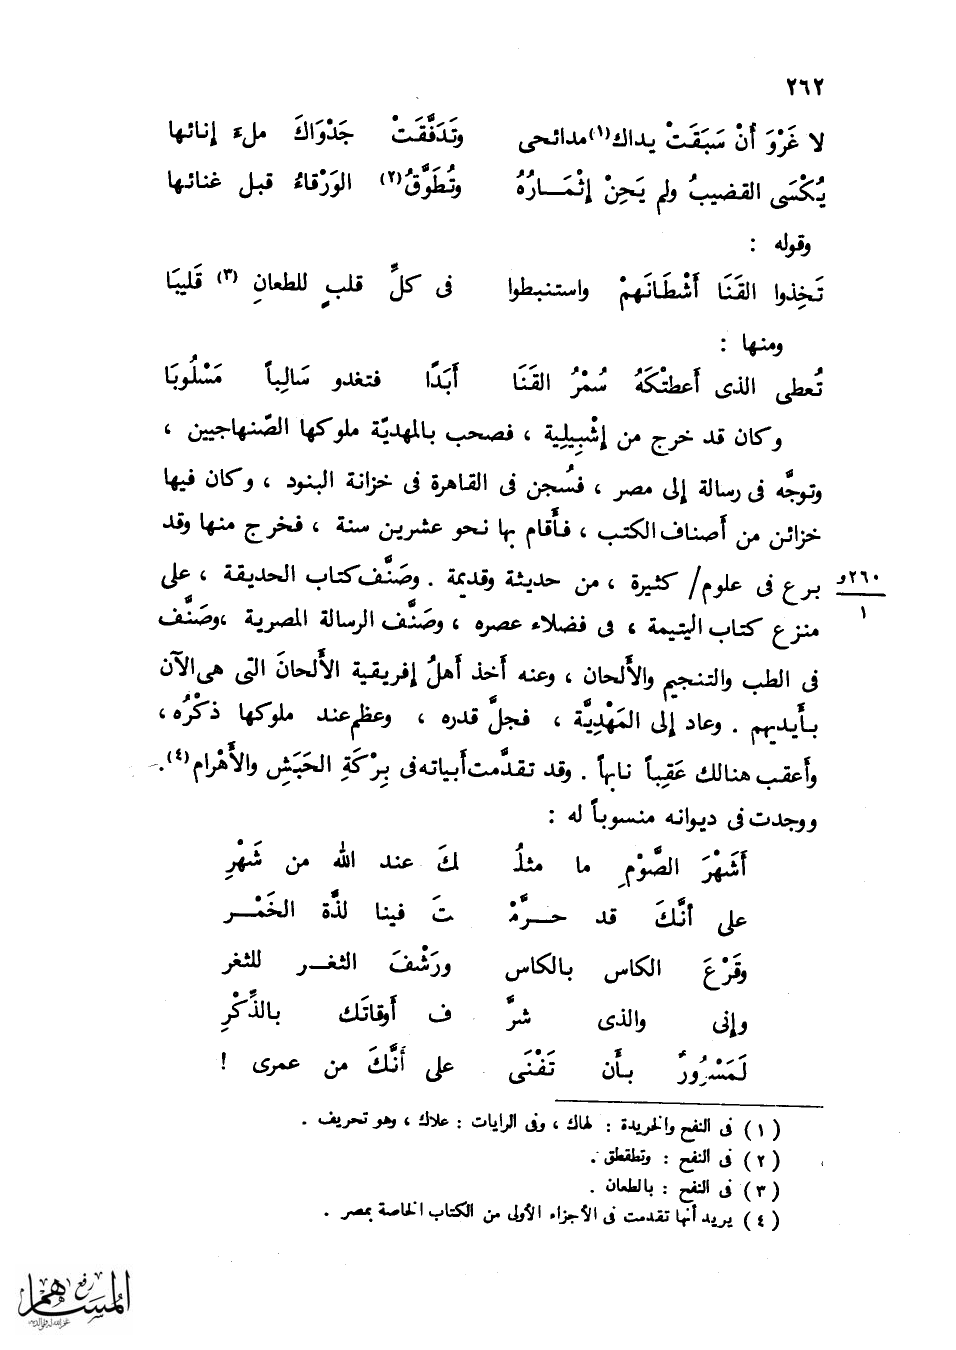 ٢٦٢
لا غَرْوَ أنْ سَبَقَتْ يداك(١) مدائحى وتَدَفَّقَتْ جَدْوَاكَ ملءَ إنائها
يُكْسَى القضيبُ ولم يَحِنْ إثْمَــارُهُ وتُطَوَّقُ(٢) الوَرْقاءُ قبل غنائها
وقوله :
تَخِذوا القَنَا أَشْطَانَهمْ واستنبطوا فى كلِّ قلبٍ للطعانِ (٣) قَلِيبَا
ومنها :
تُعطى الذى أعطتْكَهُ سُمْرُ القَنَا أَبَدًا فتغدو سَالِباً مَسْلُوبَا
وكان قد خرج من إشْبِيلِية ، فصحب بالمهديّة ملوكها الصّنهاجيين ،
وتوجَّه فى رسالة إلى مصر ، فسُجن فى القاهرة فى خزانة البنود ، وكان فيها
خزائن من أصناف الكتب ، فأَقام بها نحو عشرين سنة ، فخرج منها وقد
برع فى علوم/ كثيرة ، من حديثة وقديمة . وصَنَّف كتاب الحديقة ، على
٢٦٠و
١
منزع كتاب اليتيمة ، فى فضلاء عصره ، وصَنَّف الرسالة المصرية ،وصَنَّف
فى الطب والتنجيم والأَلحان ، وعنه أخذ أهلُ إفريقية الأَلحانَ التى هى الآن
بأَيديهم . وعاد إلى المَهْدِيَّة ، فجلَّ قدره ، وعظم عند ملوكها ذكْرُه ،
وأعقب هنالك عَقِباً نابهاً . وقد تقدَّمت أبياته فى بِرْكَةِ الحَبَشِ والأَهْرام(٤).
ووجدت فى ديوانه منسوباً له :
أَشَهْرَ الصَّوْمِ ما مثلُ لكَ عند الله من شَهْرِ
على أنَّكَ قد حــرَّمْ تَ فينا لذَّة الخَمْــر
وقَرْعَ الكاس بالكاس ورَشْفَ الثغــر للثغر
وإنى والذى شرَّ ف أوقاتَك بالذِّكْرِ
لَمَسْرُورٌ بأَن تَفْنَى على أَنَّكَ من عمرى !
(١) فى النفح والخريدة : لهاك ، وفى الرايات : علاك ، وهو تحريف .
(٢) فى النفح : وتطقطق .
(٣) فى النفح : بالطعان .
(٤) يريد أنها تقدمت فى الأجزاء الأولى من الكتاب الخاصة بمصر .
رفع
المساهم